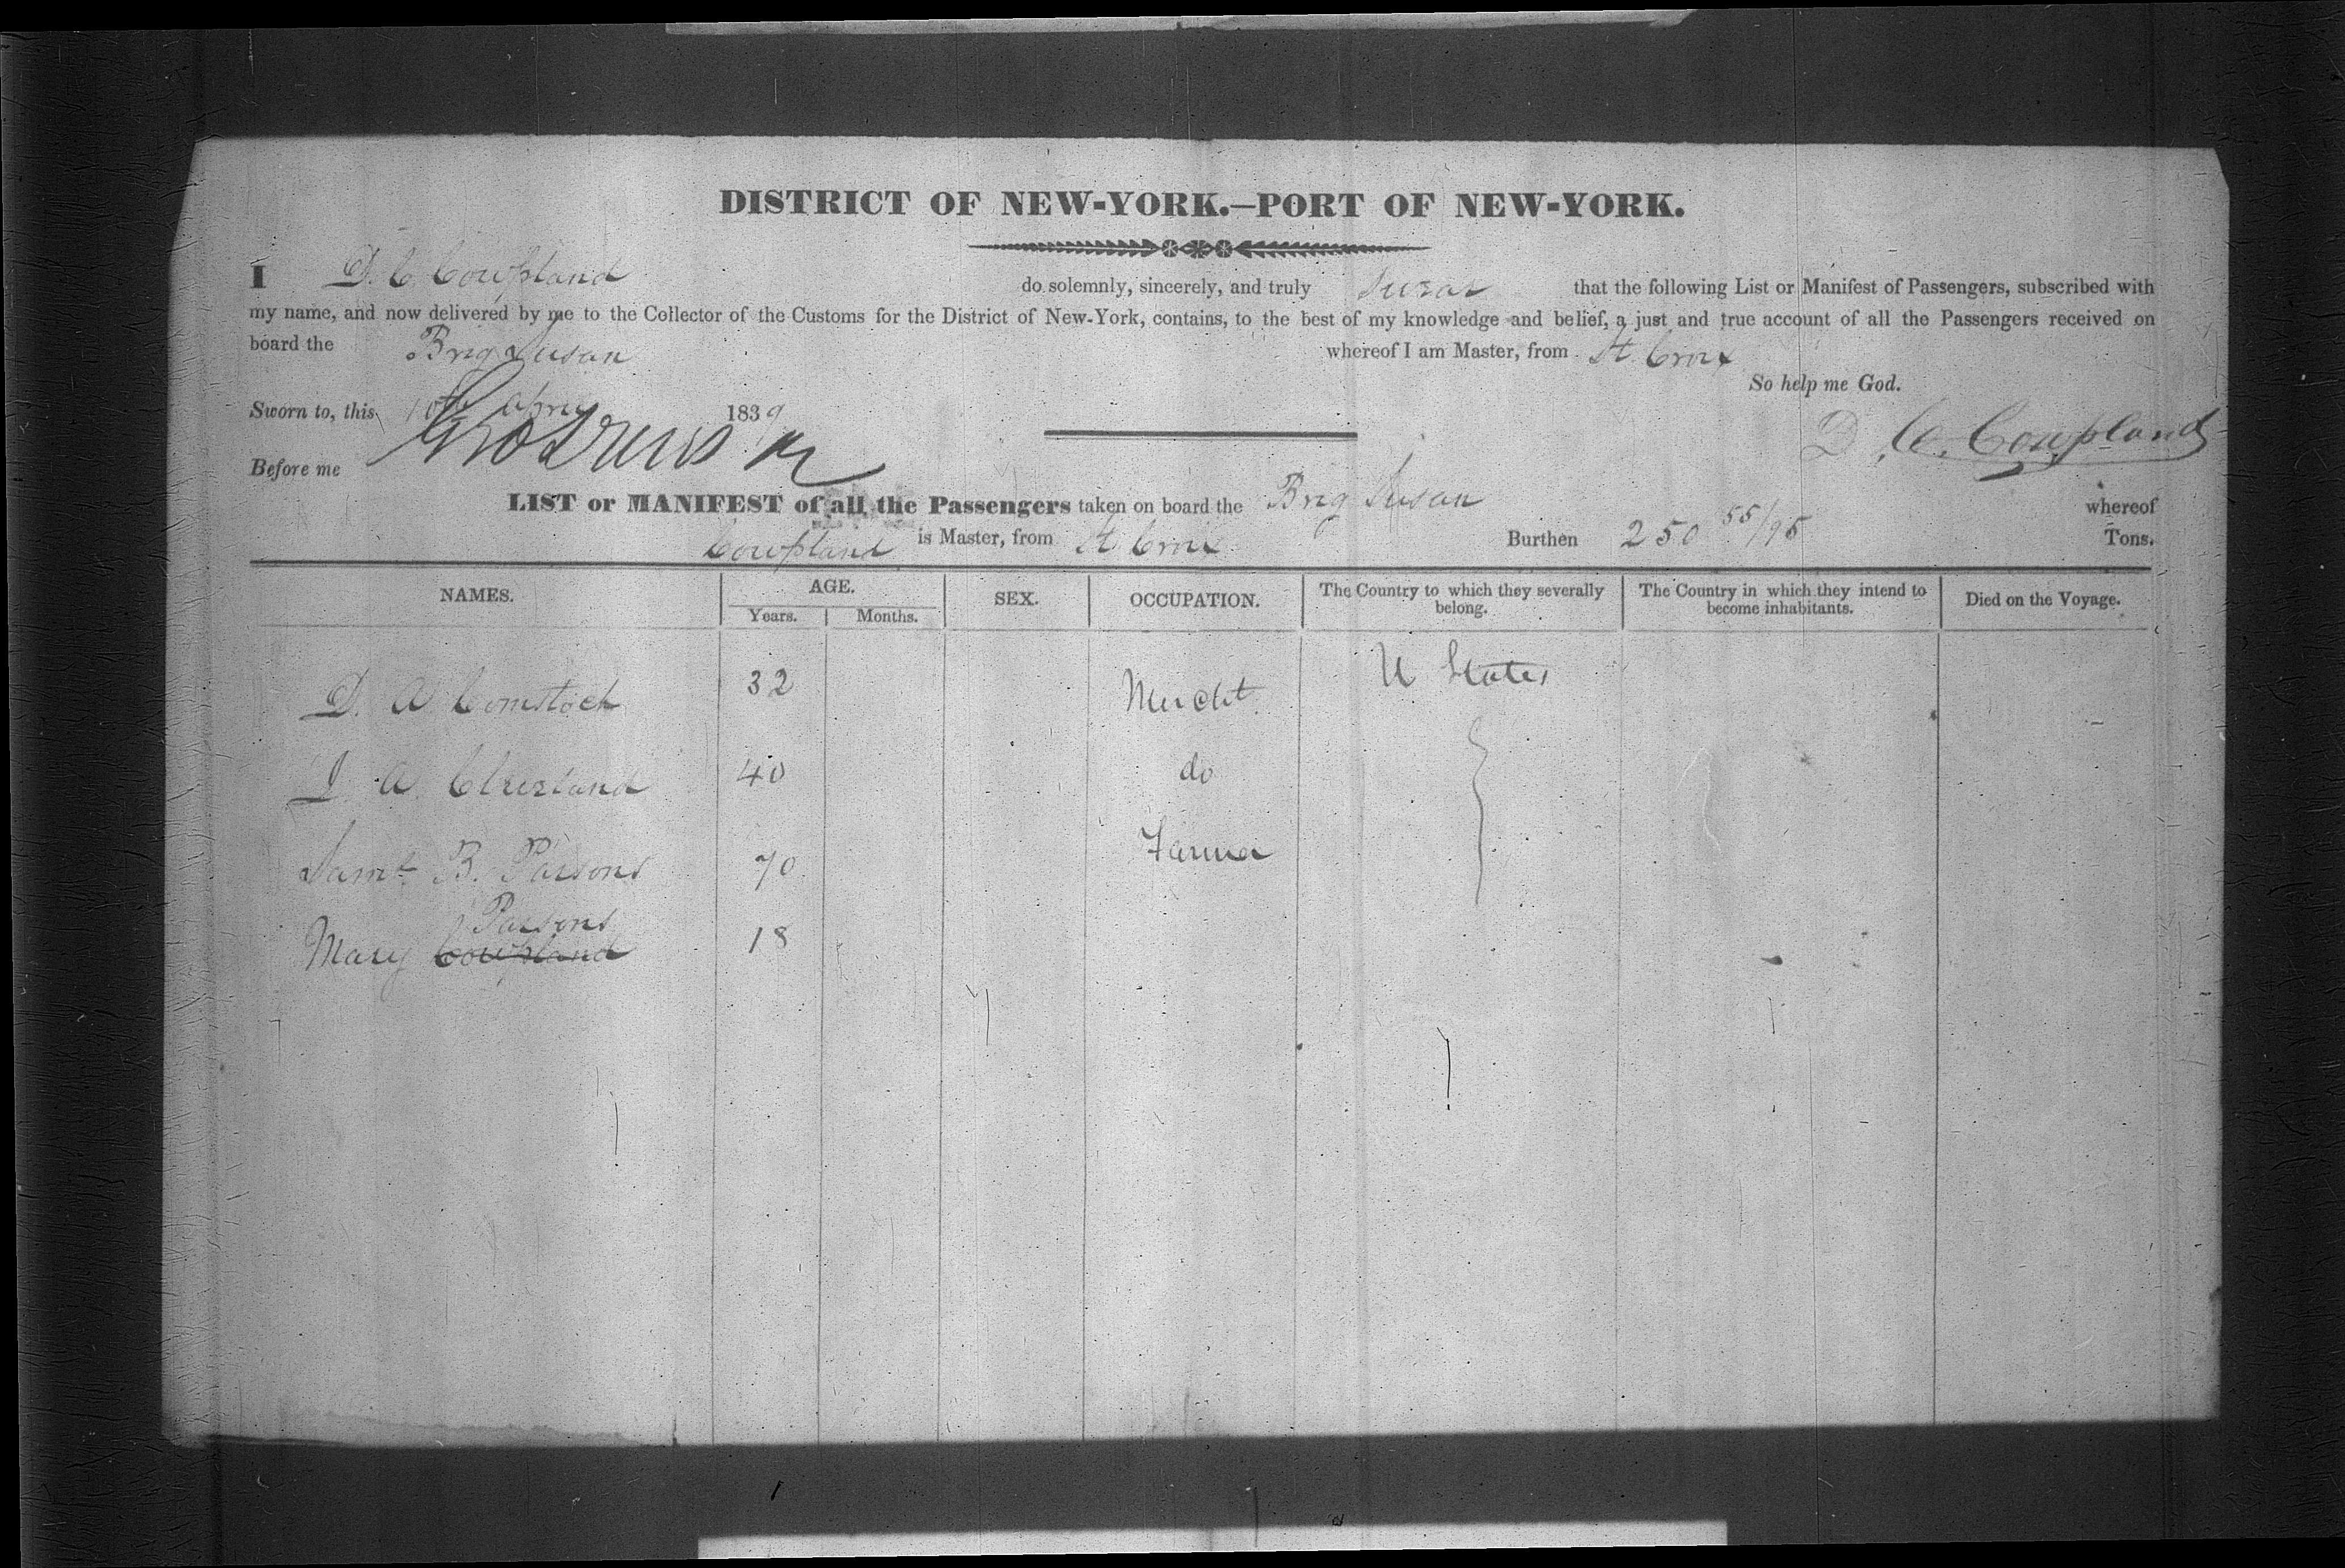 DISTRICT OF NEW-YORK.—PORT OF NEW-YORK.
I D. C. Cowpland do solemnly, sincerely, and truly swear that the following List or Manifest of Passengers, subscribed with
my name, and now delivered by me to the Collector of the Customs for the District of New-York, contains, to the best of my knowledge and belief, a just and true account of all the Passengers received on
board the Brig Susan whereof I am Master, from St. Croix
So help me God.
Sworn to, this 10th april 1839
D. C. Cowpland
Before me
LIST or MANIFEST of all the Passengers taken on board the Brig Susan whereof
Cowpland is Master, from St Croix Burthen 250 55/95 Tons.
NAMES. AGE. SEX. OCCUPATION. The Country to which they severally belong. The Country in which they intend to become inhabitants. Died on the Voyage.
Years. Months.
D. A Comstock 32 Mercht U States
J. A. Cleveland 40 do
Saml B. Parsons 70 Farmer
Parsons
Mary Cowpland 18